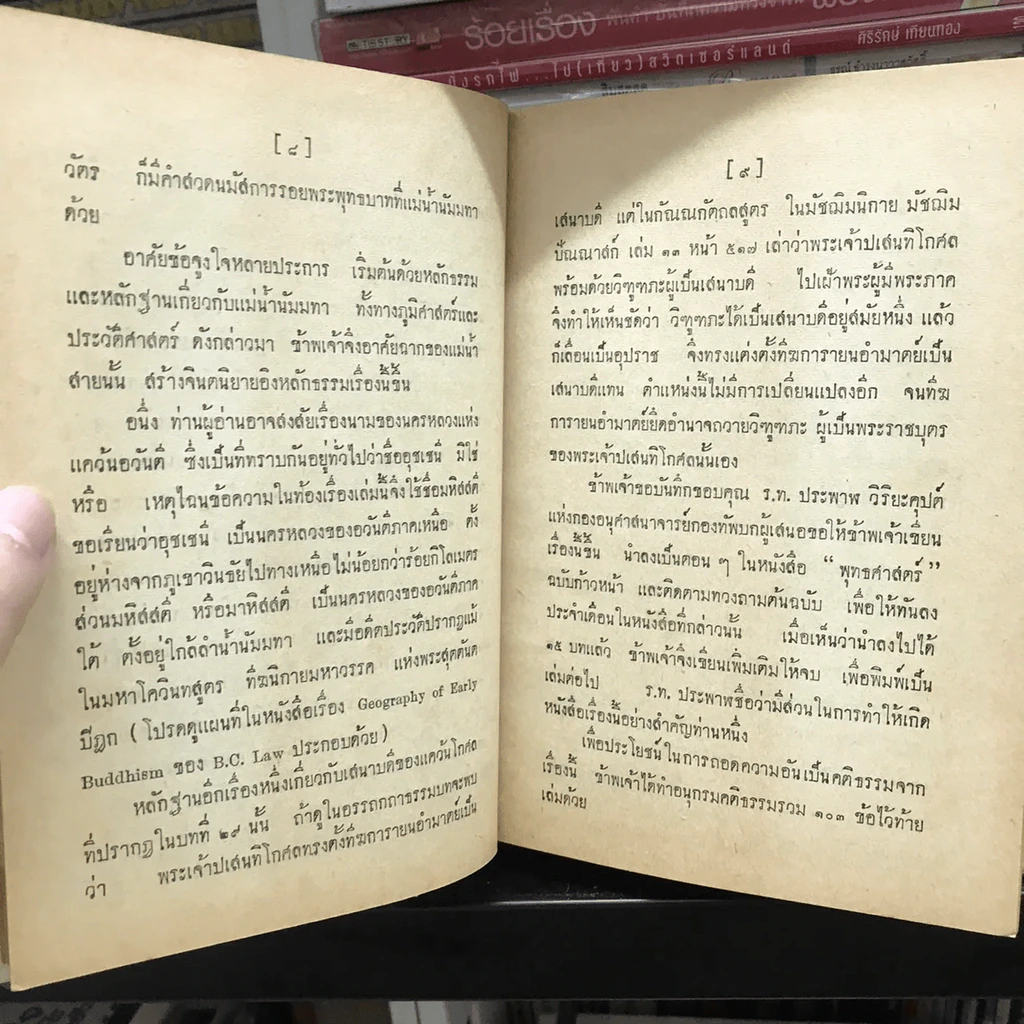 ร้อยเรื่อง
ศิริรักษ์ เทียนทอง
[ ๘ ]
วัตร ก็มีคำสวดนมัสการรอยพระพุทธบาทที่แม่น้ำนัมมทา
ด้วย
อาศัยข้อจูงใจหลายประการ เริ่มต้นด้วยหลักธรรม
และหลักฐานเกี่ยวกับแม่น้ำนัมมทา ทั้งทางภูมิศาสตร์และ
ประวัติศาสตร์ ดังกล่าวมา ข้าพเจ้าจึงอาศัยฉากของแม่น้ำ
สายนั้น สร้างจินตนิยายอิงหลักธรรมเรื่องนี้ขึ้น
อนึ่ง ท่านผู้อ่านอาจสงสัยเรื่องนามของนครหลวงแห่ง
แคว้นอวันตี ซึ่งเป็นที่ทราบกันอยู่ทั่วไปว่าชื่ออุชเชนี มิใช่
หรือ เหตุไฉนข้อความในท้องเรื่องเล่มนี้จึงใช้ชื่อมหิสสตี
ขอเรียนว่าอุชเชนี เป็นนครหลวงของอวันตีภาคเหนือ ตั้ง
อยู่ห่างจากภูเขาวินธัยไปทางเหนือไม่น้อยกว่าร้อยกิโลเมตร
ส่วนมหิสสตี หรือมาหิสสตี เป็นนครหลวงของอวันตีภาค
ใต้ ตั้งอยู่ใกล้ลำน้ำนัมมทา และมีอดีตประวัติปรากฏแม้
ในมหาโควินทสูตร ทีฆนิกายมหาวรรค แห่งพระสุตตันต
ปิฎก ( โปรดดูแผนที่ในหนังสือเรื่อง Geography of Early
Buddhism ของ B.C. Law ประกอบด้วย)
หลักฐานอีกเรื่องหนึ่งเกี่ยวกับเสนาบดีของแคว้นโกศล
ที่ปรากฏในบทที่ ๒๙ นั้น ถ้าดูในอรรถกถาธรรมบทจะพบ
ว่า พระเจ้าปเสนทิโกศลทรงตั้งทีฆการายนอำมาตย์เป็น
[ ๙ ]
เสนาบดี แต่ในกัณณกัตถลสูตร ในมัชฌิมนิกาย มัชฌิม
ปัณณาสก์ เล่ม ๑๓ หน้า ๕๑๗ เล่าว่าพระเจ้าปเสนทิโกศล
พร้อมด้วยวิฑูฑภะผู้เป็นเสนาบดี ไปเฝ้าพระผู้มีพระภาค
จึงทำให้เห็นชัดว่า วิฑูฑภะได้เป็นเสนาบดีอยู่สมัยหนึ่ง แล้ว
ก็เลื่อนเป็นอุปราช จึงทรงแต่งตั้งทีฆการายนอำมาตย์เป็น
เสนาบดีแทน ตำแหน่งนี้ไม่มีการเปลี่ยนแปลงอีก จนทีฆ
การายนอำมาตย์ยึดอำนาจถวายวิฑูฑภะ ผู้เป็นพระราชบุตร
ของพระเจ้าปเสนทิโกศลนั้นเอง
ข้าพเจ้าขอบันทึกขอบคุณ ร.ท. ประพาพ วิริยะคุปต์
แห่งกองอนุศาสนาจารย์กองทัพบกผู้เสนอขอให้ข้าพเจ้าเขียน
เรื่องนี้ขึ้น นำลงเป็นตอน ๆ ในหนังสือ “ พุทธศาสตร์ ”
ฉบับก้าวหน้า และติดตามทวงถามต้นฉบับ เพื่อให้ทันลง
ประจำเดือนในหนังสือที่กล่าวนั้น เมื่อเห็นว่านำลงไปได้
๑๕ บทแล้ว ข้าพเจ้าจึงเขียนเพิ่มเติมให้จบ เพื่อพิมพ์เป็น
เล่มต่อไป ร.ท. ประพาพชื่อว่ามีส่วนในการทำให้เกิด
หนังสือเรื่องนี้อย่างสำคัญท่านหนึ่ง
เพื่อประโยชน์ในการถอดความอันเป็นคติธรรมจาก
เรื่องนี้ ข้าพเจ้าได้ทำอนุกรมคติธรรมรวม ๑๐๓ ข้อไว้ท้าย
เล่มด้วย